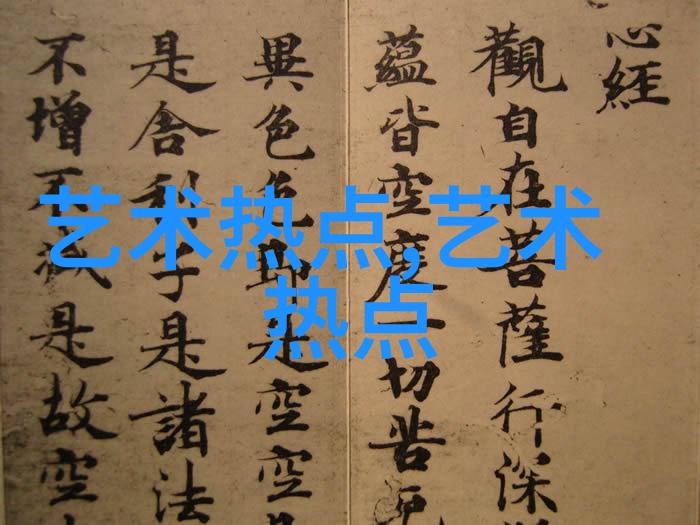 心經
觀自在菩薩行深
蘊皆空度一切苦厄
異色色即是空空
是舍利子是諸法
不增不減是故空
艺术热点,艺术
热点